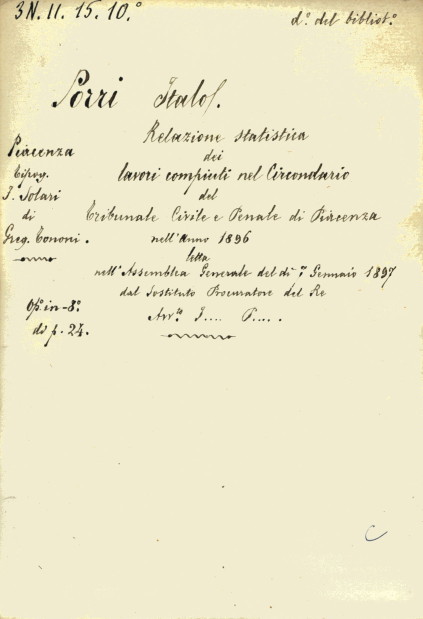 3N. II. 15. 10.°
d.° del bibliot.°
Porri Italo.
Relazione statistica
dei
lavori compiuti nel Circondario
del
Tribunale Civile e Penale di Piacenza
nell'anno 1896
letta
nell'Assemblea Generale del dì 7 Gennaio 1897
dal Sostituto Procuratore del Re
Avv.to I.... P.....
Piacenza
Tipog.
F. Solari
di
Greg. Tononi.
Op. in-8.°
di p. 24.
C